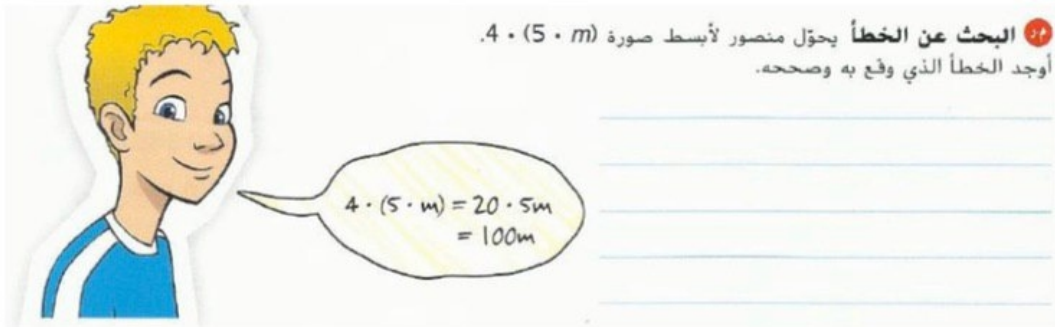 م.ر البحث عن الخطأ يحوّل منصور لأبسط صورة 4 • (5 • m).
أوجد الخطأ الذي وقع به وصححه.
4 · (5 · m) = 20 · 5m
= 100m